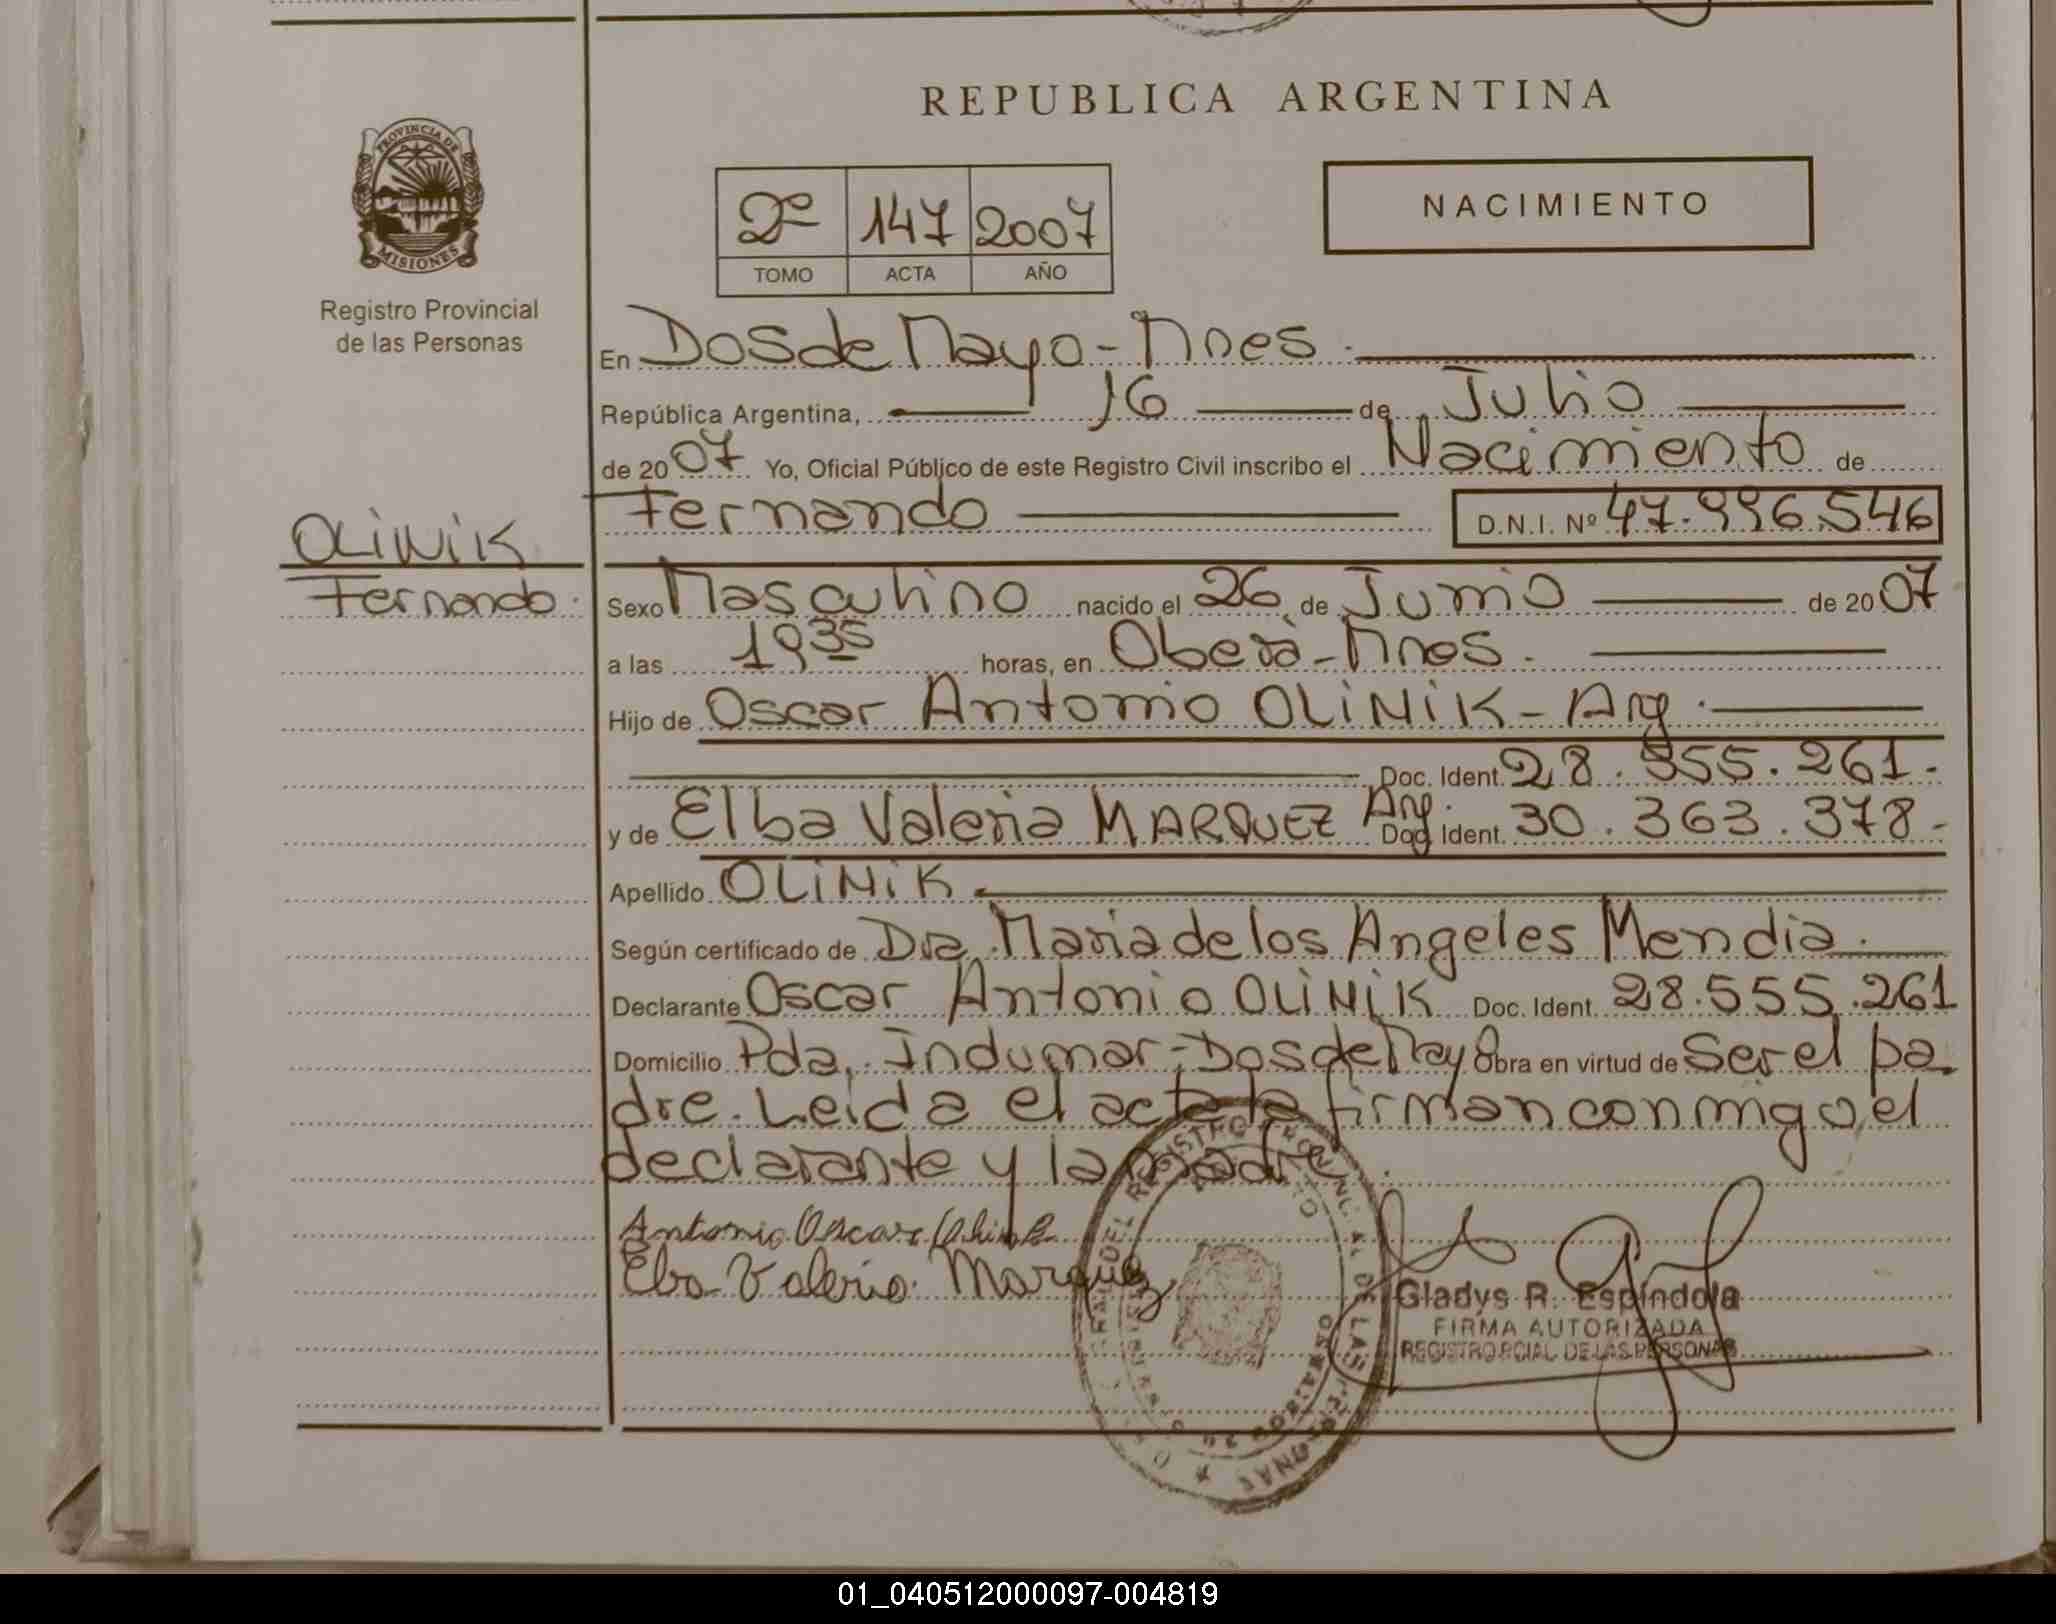 REPUBLICA ARGENTINA
PROVINCIA DE
MISIONES
Registro Provincial
de las Personas
2º 147 2007
TOMO ACTA AÑO
NACIMIENTO
En Dos de Mayo - Mnes.
República Argentina, 16 de Julio
de 2007 Yo, Oficial Público de este Registro Civil inscribo el Nacimiento de
Fernando D.N.I. Nº 47.996.546
OLiNiK
Fernando.
Sexo Masculino nacido el 26 de Junio de 2007
a las 19 35 horas, en Oberà - Mnes.
Hijo de Oscar Antonio OLiNiK - Arg.
Doc. Ident. 28.555.261.-
y de Elba Valeria MARQUEZ Arg. Doc. Ident. 30.363.378.-
Apellido OLiNiK.
Según certificado de Dra. Maria de los Angeles Mendia.
Declarante Oscar Antonio OLiNiK Doc. Ident. 28.555.261
Domicilio Pda. Indumar - Dos de Mayo Obra en virtud de Ser el pa-
dre. Leida el acta la firman conmigo el
declarante y la madre.
Antonio Oscar Olinik
Elba Valeria Marquez
Gladys R. Espíndola
FIRMA AUTORIZADA
REGISTRO PCIAL DE LAS PERSONAS
01_040512000097-004819